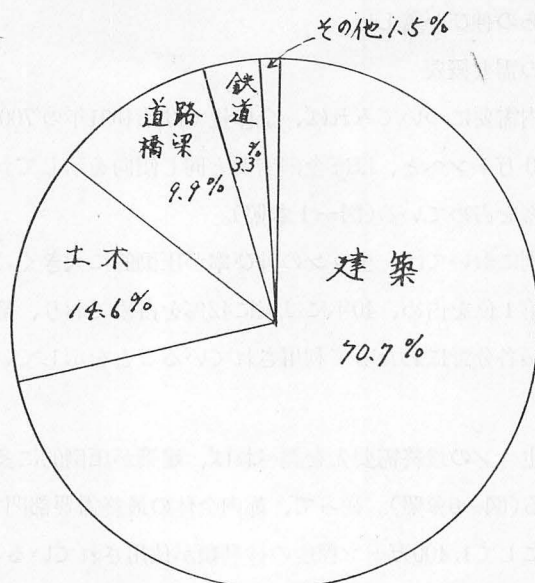 その他 1.5%
鉄道
3.3%
道路
橋梁
9.9%
土木
14.6%
建築
70.7%